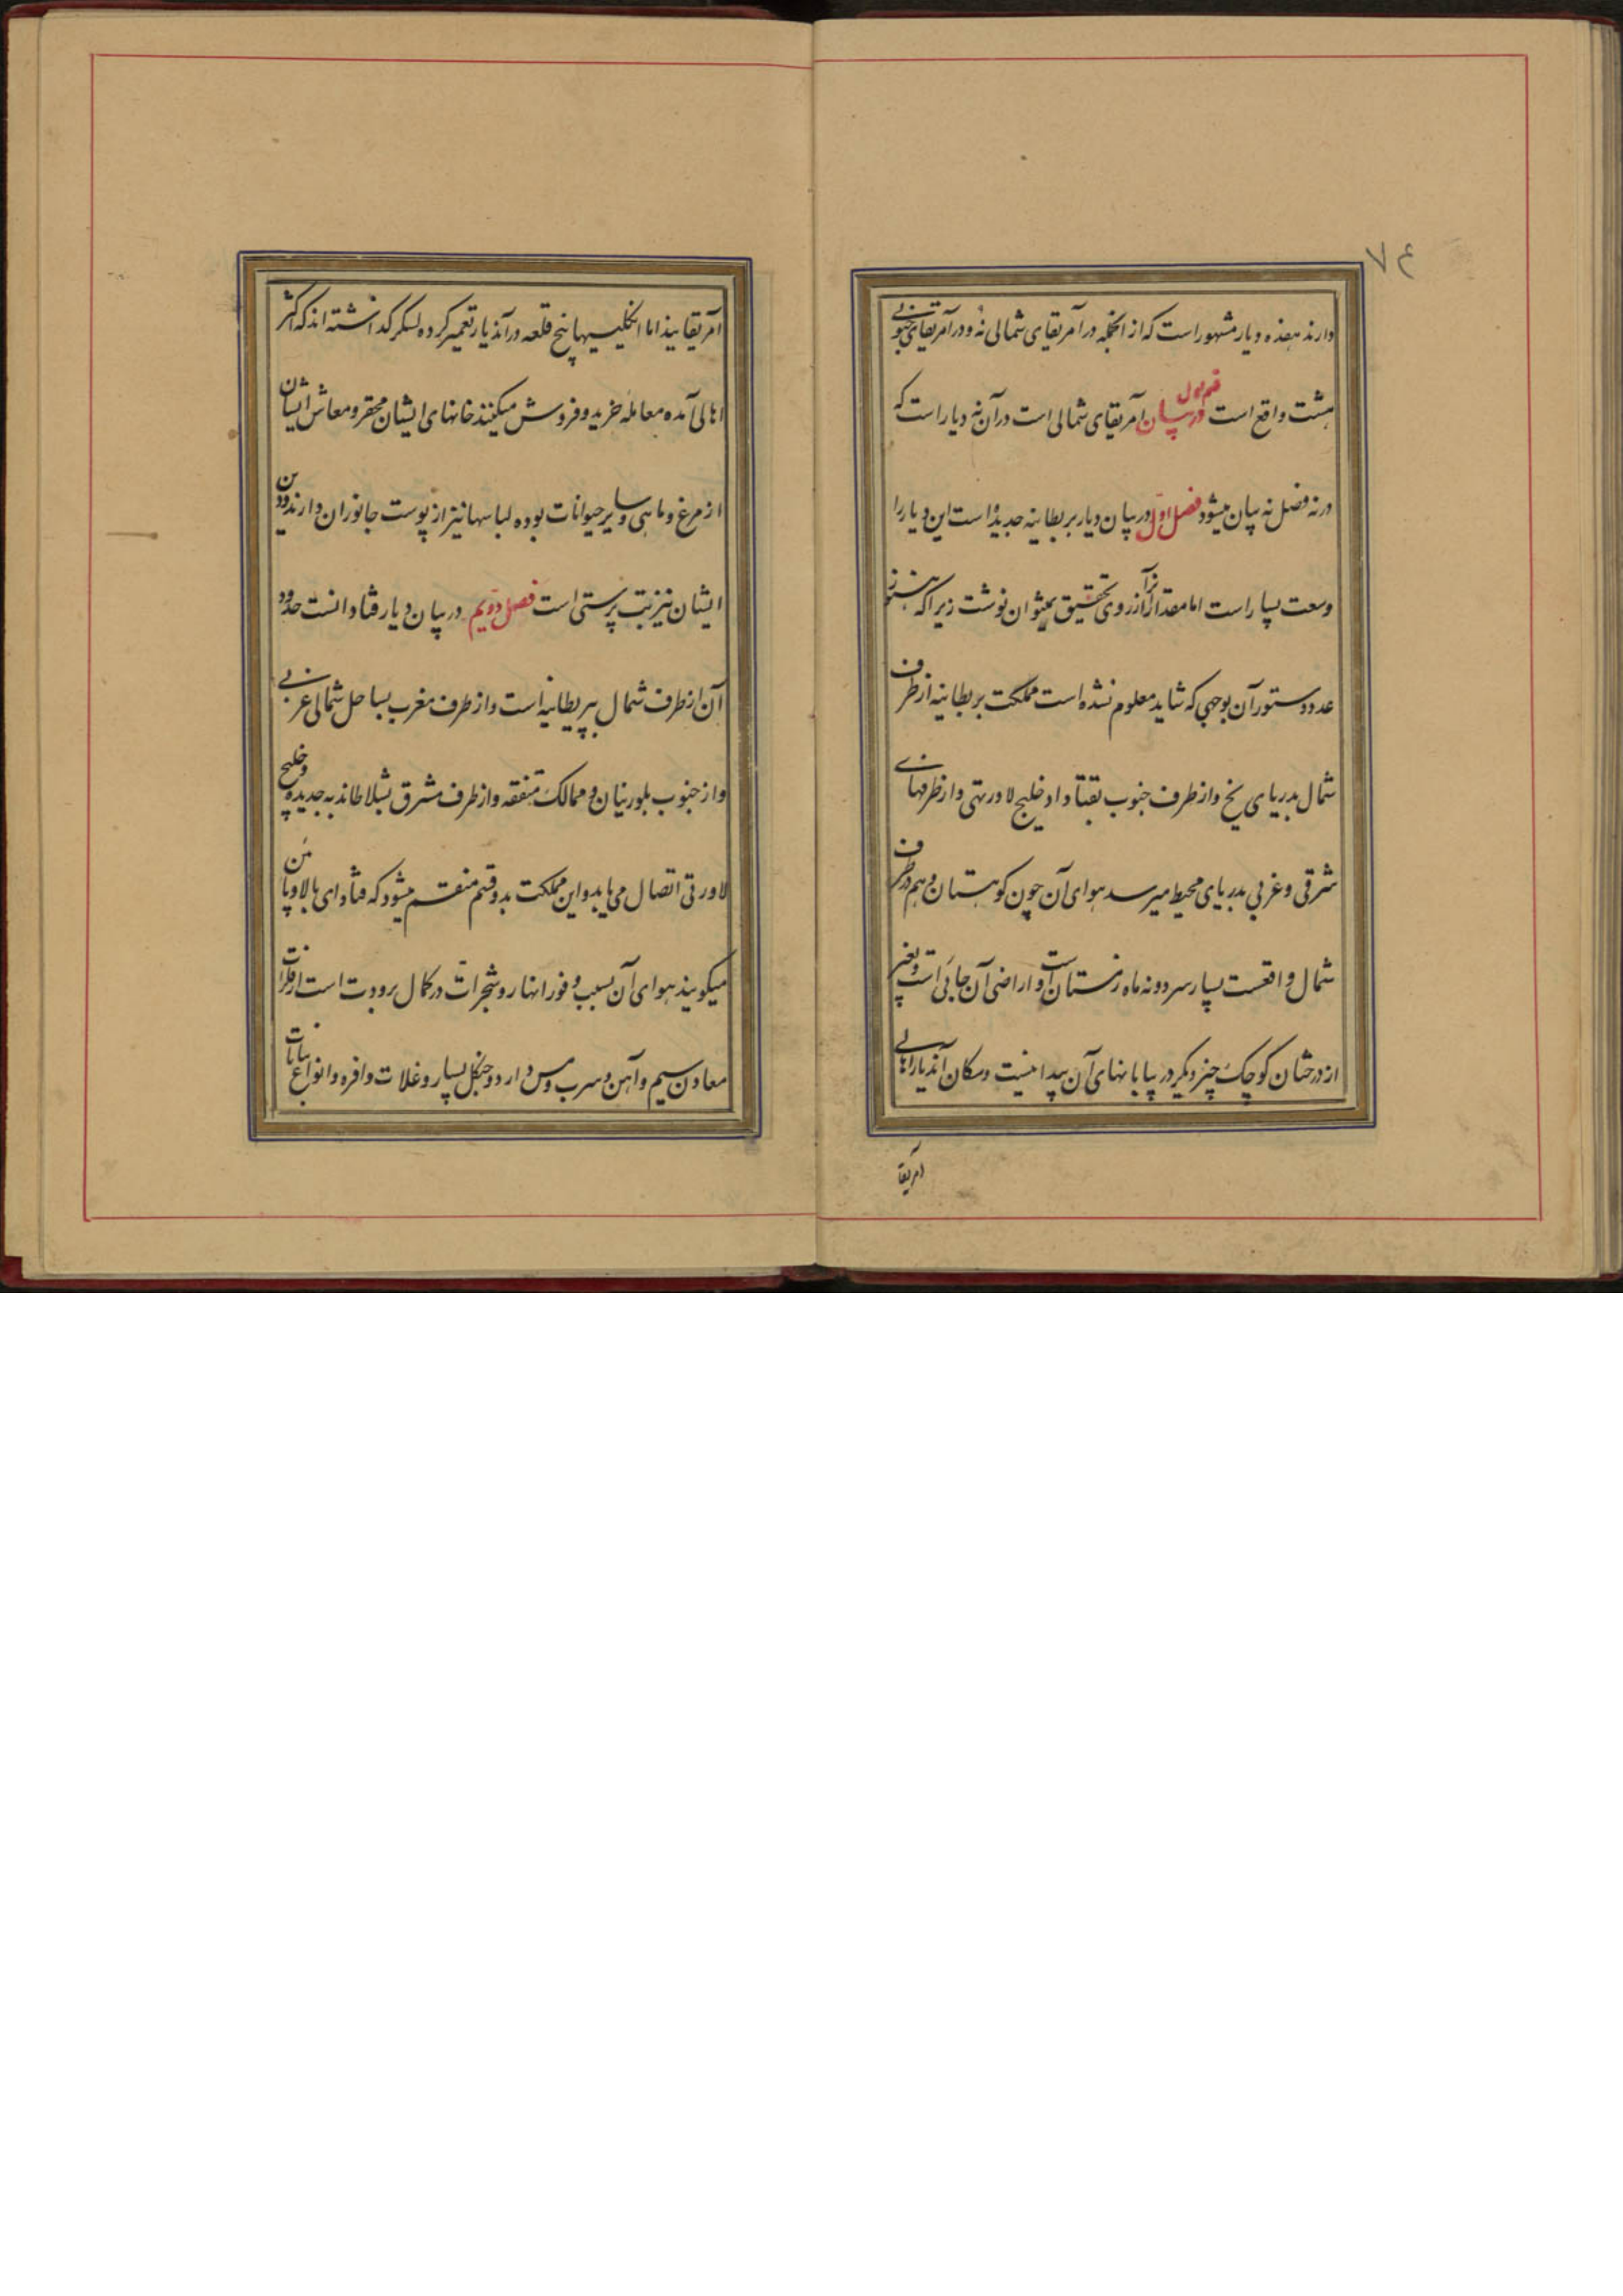 ۷۴
دارند هفده دیار مشهور است که از انجمله در آمریقای شمالی نُه و در آمریقای جنوبی
هشت واقع است قسم اول در بیان آمریقای شمالی است در آن نه دیار است که
در نه فصل نه بیان میشود فصل اول در بیان دیار بریطانیه جدید است این دیار را
وسعت بسیار است اما مقدار آنرا از روی تحقیق نمیتوان نوشت زیرا که هنوز
عدد و ستور آن بوجهی که شاید معلوم نشده است مملکت بریطانیه از طرف
شمال بدریای یخ و از طرف جنوب بقناداو خلیج لاورنتی و از طرفهای
شرقی و غربی بدریای محیط میرسد هوای آن چون کوهستان و هم در طرف
شمال واقعست بسیار سرد و نه ماه زمستان است و اراضی آن جائی است و بغیر
از درختان کوچک چیز دیگر در بیابانهای آن پیدا نیست و مکان آندیار را اهالی
آمریقا
آمریقایند اما انکلیسیها پنج قلعه در آندیار تعمیر کرده لسکر کداشته اند که اکثر
اهالی آمده معامله خرید و فروش میکنند خانهای ایشان محقر و معاش ایشان
از مرغ و ماهی و سایر حیوانات بوده لباسها نیز از پوست جانوران دارند و دین
ایشان نیز بت پرستی است فصل دویم در بیان دیار قناداست حدود
آن از طرف شمال ببریطانیه است و از طرف مغرب بساحل شمالی غربی
و از جنوب بلورنیان و ممالک متفقه و از طرف مشرق بشلاطاندیه جدیده و خلیج
لاورتی اتصال می یابد و این مملکت بدو قسم منقسم میشود که قنادای بالا و پائن
میکویند هوای آن بسبب وفور انهار و شجرات در کمال برودت است از فلزات
معادن سیم و آهن و سرب و مس دارد و جنکل بسیار و غلات وافره و انواع نباتات